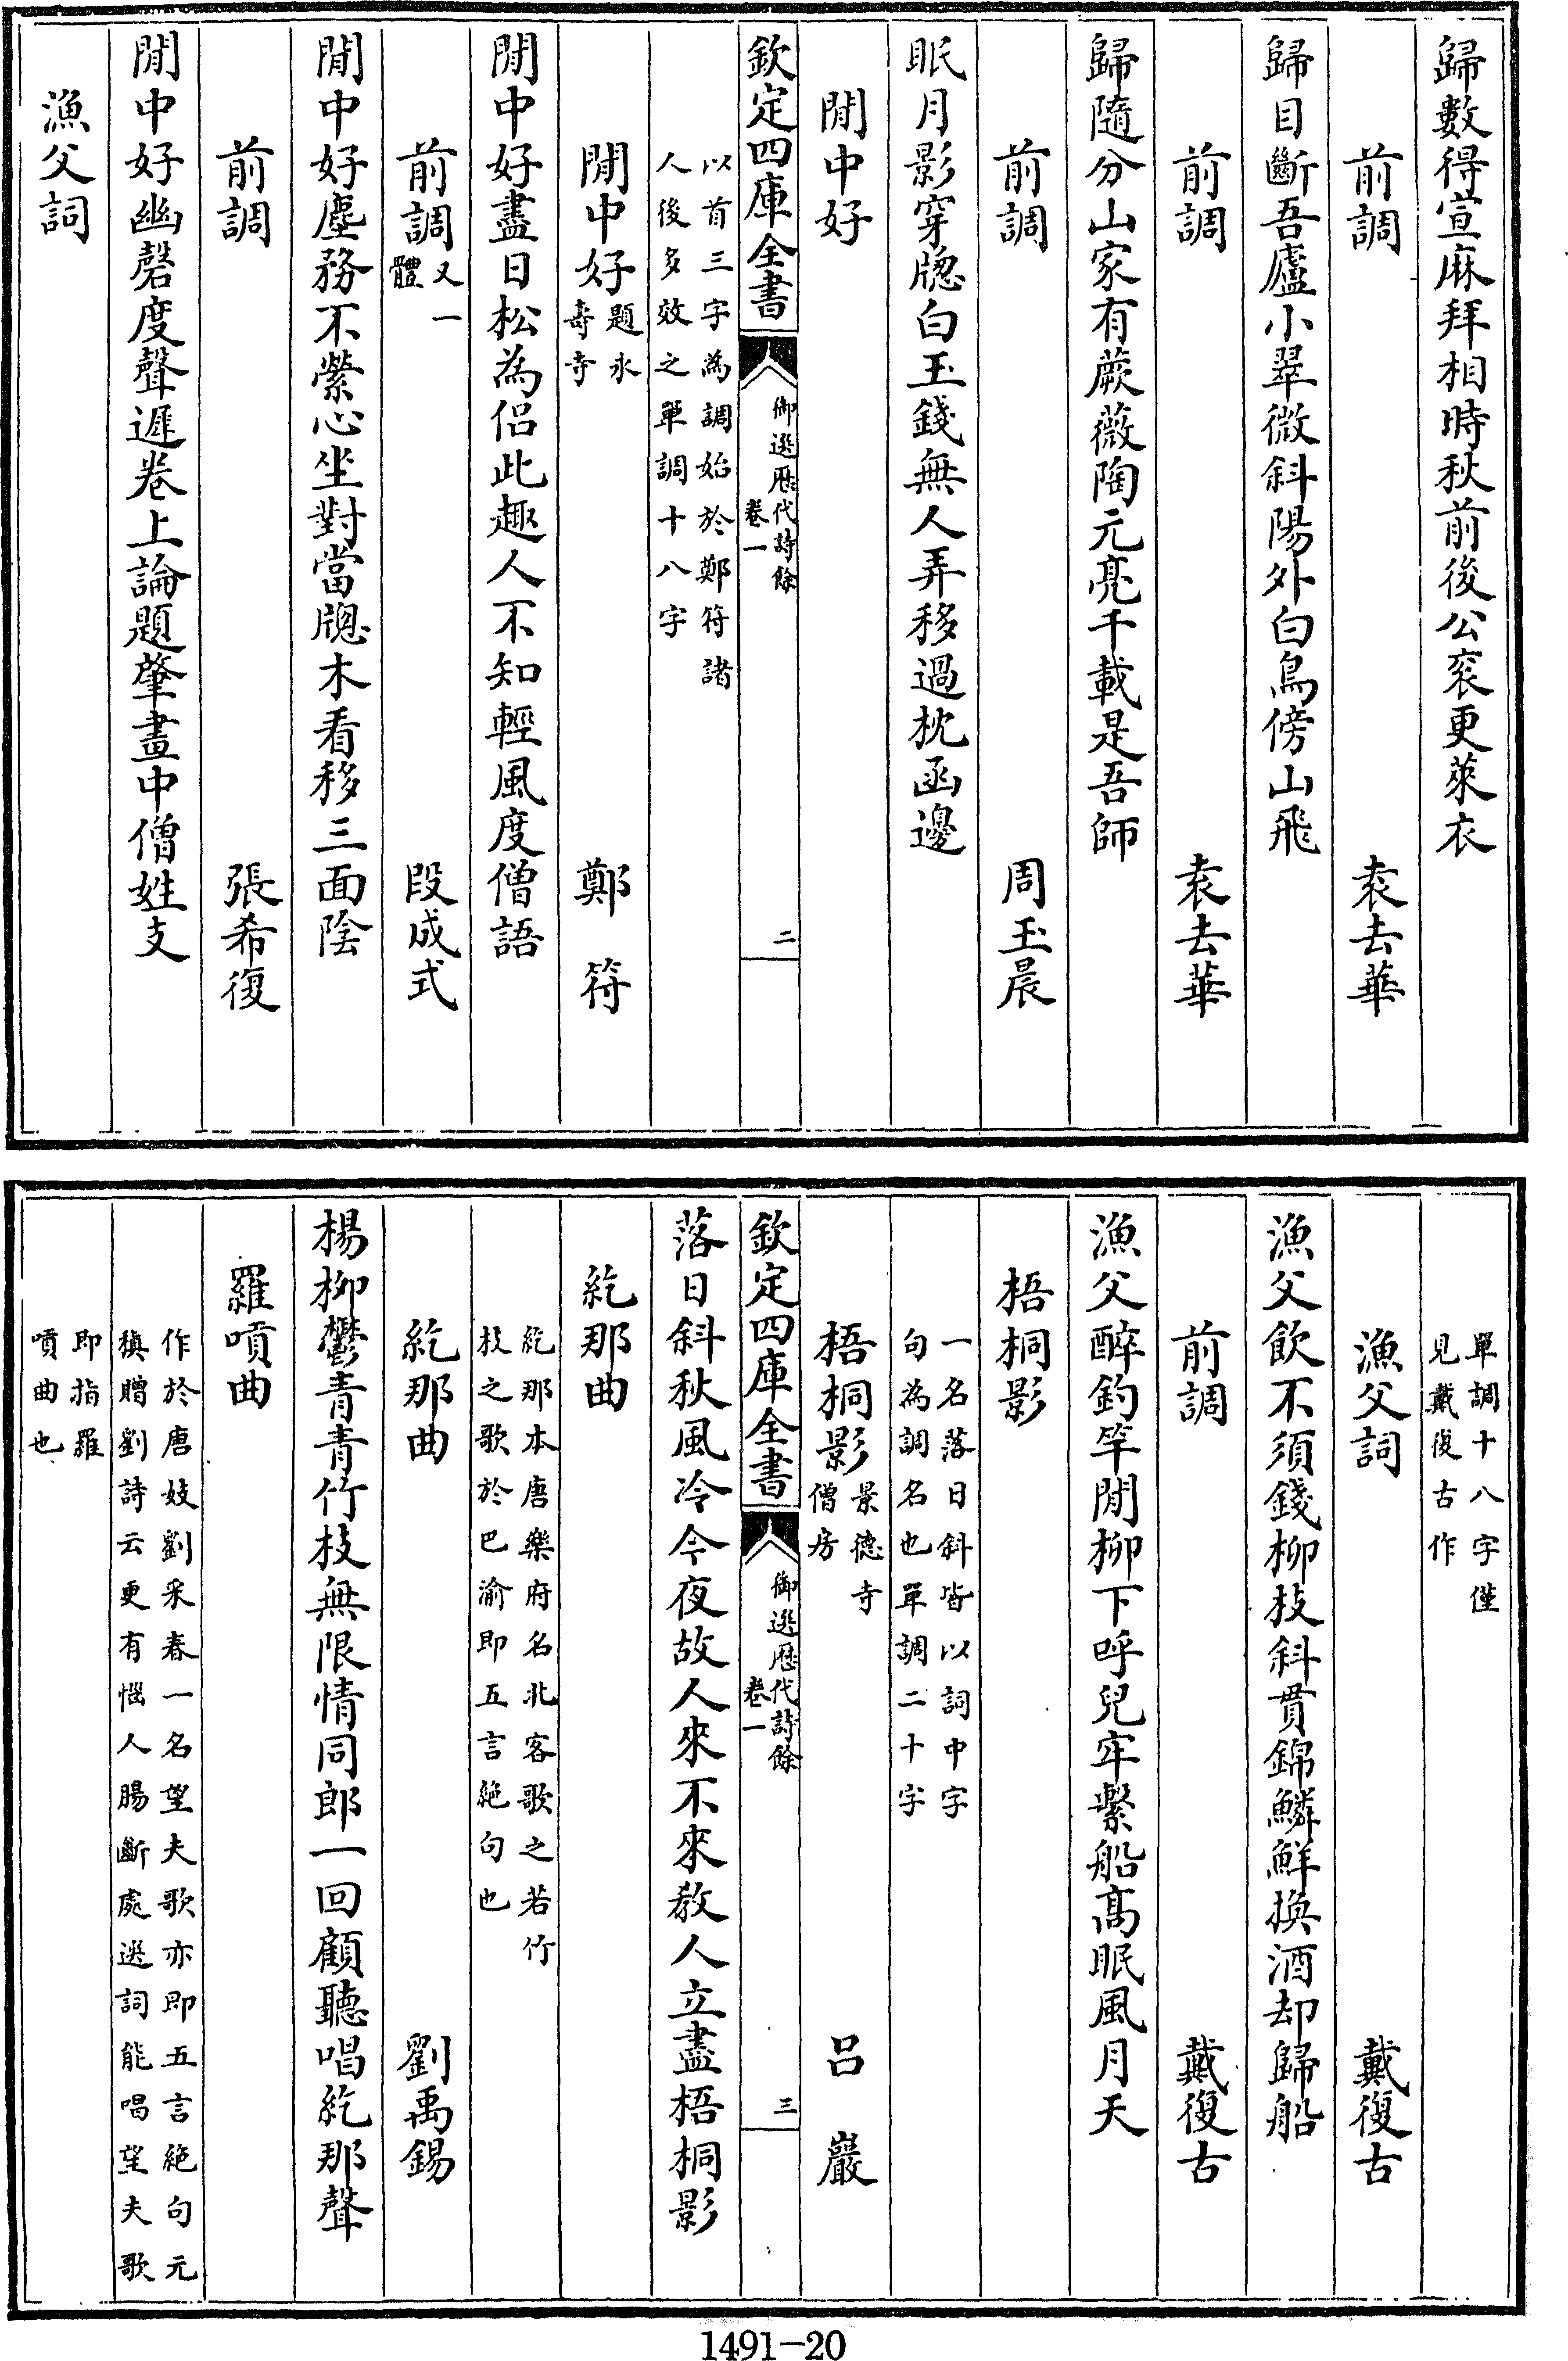 歸數得宣麻拜相時秋前後公衮更萊衣
前調　袁去華
歸目斷吾廬小翠微斜陽外白鳥傍山飛
前調　袁去華
歸隨分山家有蕨薇陶元亮千載是吾師
前調　周玉晨
眠月影穿牕白玉錢無人弄移過枕函邊
閒中好
欽定四庫全書
御選歷代詩餘
卷一
二
以首三字為調始於鄭符諸
人後多效之單調十八字
閒中好題永壽寺　鄭　符
閒中好盡日松為侶此趣人不知輕風度僧語
前調又一體　段成式
閒中好塵務不縈心坐對當牕木看移三面陰
前調　張希復
閒中好幽磬度聲遲卷上論題肇畫中僧姓支
漁父詞
單調十八字僅
見戴復古作
漁父詞　戴復古
漁父飲不須錢柳枝斜貫錦鱗鮮換酒却歸船
前調　戴復古
漁父醉釣竿閒柳下呼兒牢繫船高眠風月天
梧桐影
一名落日斜皆以詞中字
句為調名也單調二十字
梧桐影景德寺僧房　呂　巖
欽定四庫全書
御選歷代詩餘
卷一
三
落日斜秋風冷今夜故人來不來教人立盡梧桐影
紇那曲
紇那本唐樂府名北客歌之若竹
枝之歌於巴渝即五言絶句也
紇那曲　劉禹錫
楊柳鬱青青竹枝無限情同郎一回顧聽唱紇那聲
羅嗊曲
作於唐妓劉采春一名望夫歌亦即五言絶句元
稹贈劉詩云更有惱人腸斷處選詞能唱望夫歌
即指羅
嗊曲也
1491-20